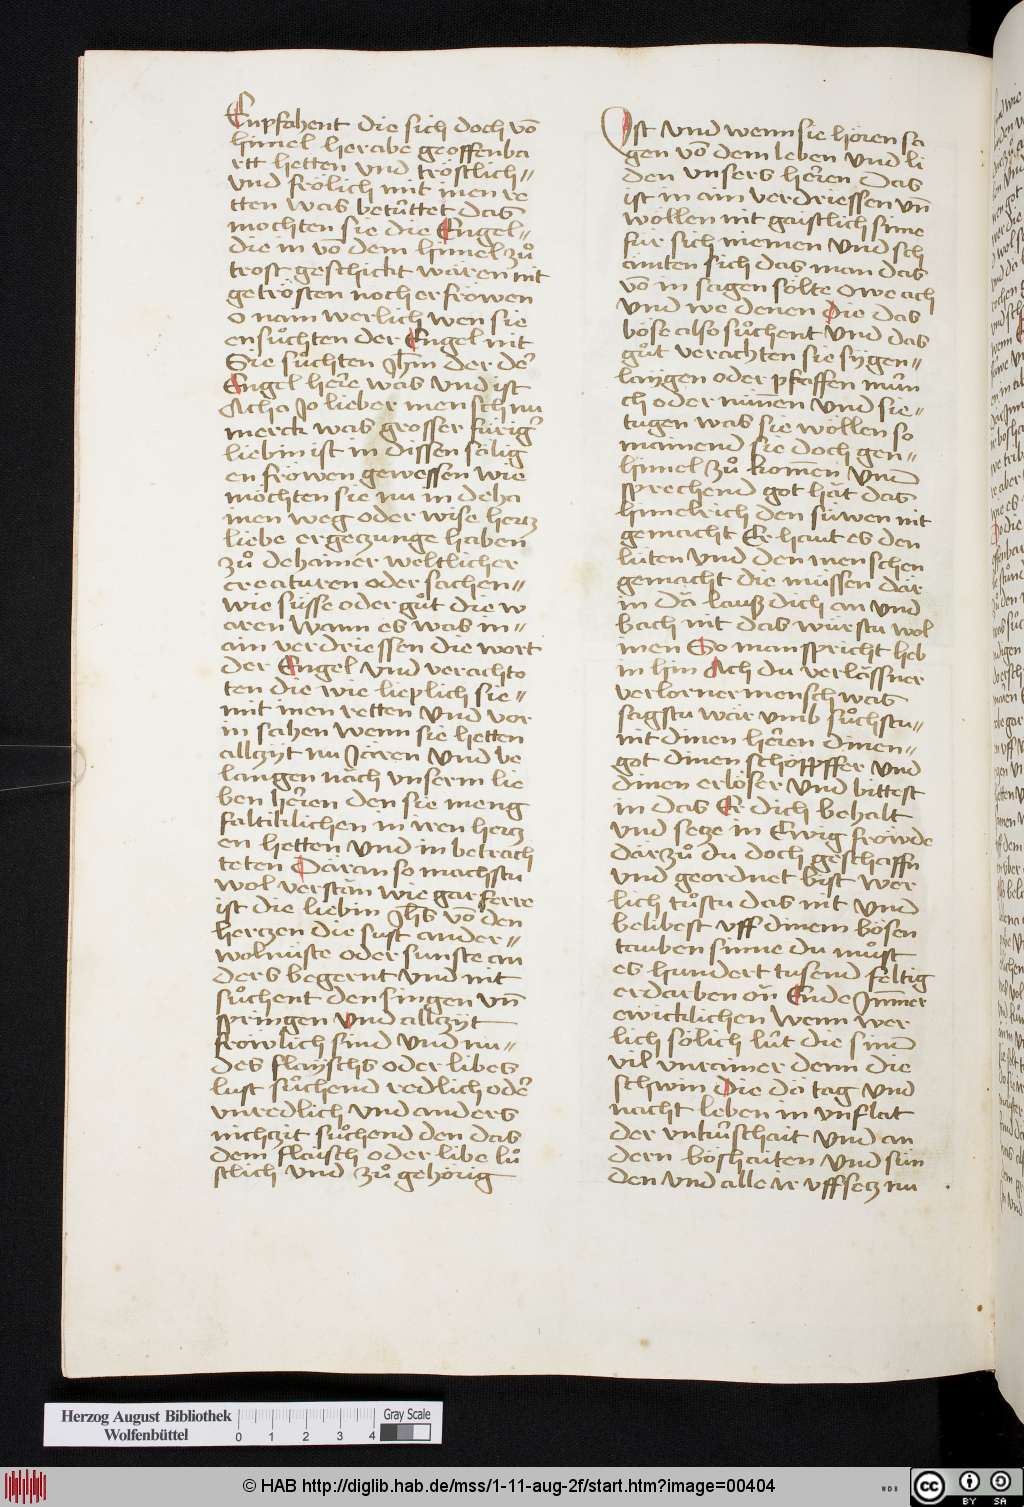 Enpfahent die sich doch võ
himel herabe geoffenba
rtt hetten vnd tröstlich〃
vnd frölich mit inen re
tten was betüttet das
mochten sie die Engel〃
die in võ dem himel zů
trost geschickt wären nit
getrösten noch erfröwen
O nain werlich wen sie
ensůchten der Engel nit
Sie sůchten Jhm der der
Engel here was vnd ist
Acha Jo lieber mensch nu
merck was grosser fürig
liebin ist in dissen sälig
en fröwen gewessen wie
möchten sie nu in deha
inen weg oder wise hertz
liebe ergetzunge haben
zů dehainer weltlicher
creaturen oder sachen〃
wie süsse oder gůt die w
aren Wann es was in〃
ain verdriessen die wort
der Engel vnd verachto
ten die wie lieplich sie〃
mit inen retten vnd vor
in sahen wenn sie hetten
allzÿt nu Jaren vnd be
langen nach vnserm lie
ben heren den sie meng
faltiklichen in iren hertz
en hetten vnd in betrach
teten Däran so machstu
wol verstän wie gar ferre
ist die liebin Jhs võ den
hertzen die sust ander〃
wolnüste oder sunste an
ders begernt vnd nit
sůchent den singen vñ
springen vnd allzÿt
fröwlich sind vnd nu〃
des flaÿschs oder libes
lust sůchend redlich oder
vnredlich vnd anders
nichzit sůchend den das
dem flaisch oder libe lů
stlich vnd zů gehörig
Ist vnd wenn sie hören sa
gen võ dem leben vnd li
den vnsers heren Das
ist in ain verdriessen vñ
wöllen nit gaistlich sinne
für sich niemen vnd sch
ämten sich das man das
võ in sagen sölte Owe ach
vnd we denen Die das
böse also sůchent vnd das
gůt verachten sie sÿgen〃
laÿgen oder pfaffen mün
ch oder nunen vnd sie〃
tugen was sie wöllen so
mainend sie doch gen〃
himel zů komen vnd
sprechend got hät das
himelrich den süwen nit
gemacht Er haut es den
lüten vnd den menschen
gemacht die müssen där
in dä lauß dich an vnd
bach nit das würstu wol
inen So man spricht heb
in hin Ach du verlässner
verlorner mensch was
sagstu wär vmb sůchstu〃
nit dinen heren dinen〃
got dinen schöppffer vnd
dinen erlöser vnd bittest
in das Er dich behalt
vnd setze in Ewig fröwde
därzů du doch geschaffn
vnd geordnet bist wer
lich tůstu das nit vnd
belibest vff dinem bösen
tauben sinne du můst
es hundert tusend feltig
erdarben on Ende Jmmer
ewicklichen Wenn wer
lich sölich lüt die sind
vil vnrainer denn die
schwin Die dä tag vnd
nacht leben in vnflat
der vntrüschait vnd an
dern böshaiten vnd sün
den vnd alle ir vffsetz nu
Herzog August Bibliothek
Wolfenbüttel
0 1 2 3 4
Gray Scale
© HAB http://diglib.hab.de/mss/1-11-aug-2f/start.htm?image=00404
WDB
cc BY SA